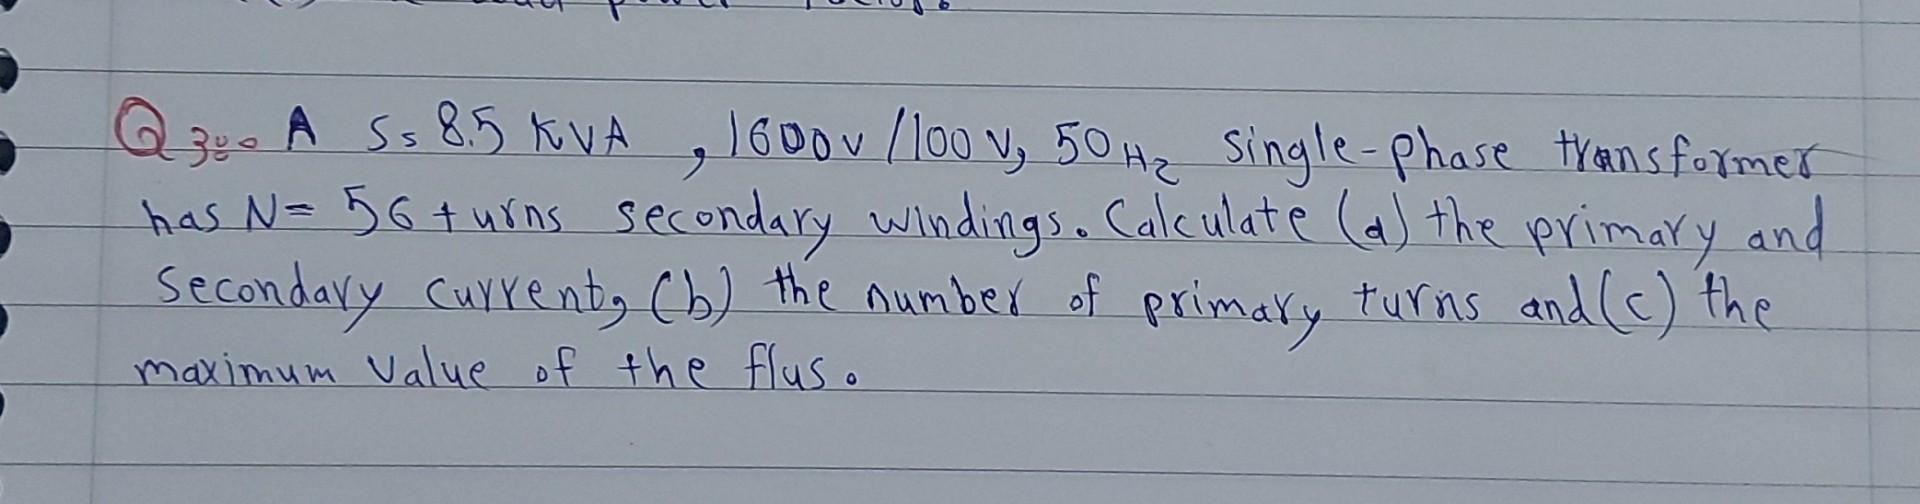 Q3:- A S= 8.5 KVA, 1600V/100V, 50Hz single-phase transformer
has N= 56 turns secondary windings. Calculate (a) the primary and
secondary current, (b) the number of primary turns and (c) the
maximum value of the flus.